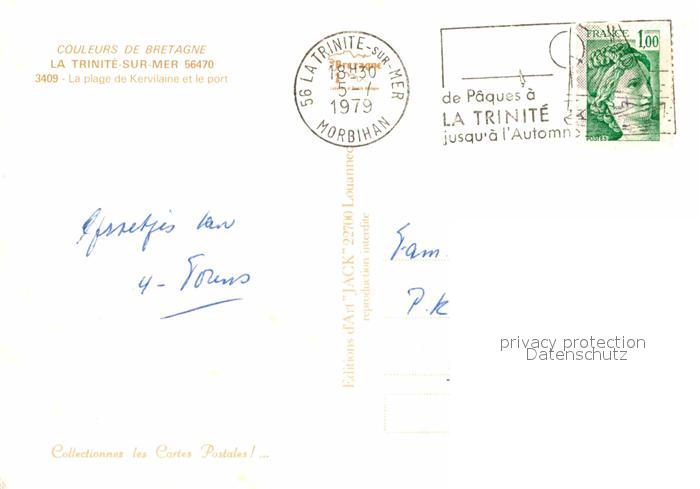 COULEURS DE BRETAGNE
LA TRINITÉ-SUR-MER 56470
3409 - La plage de Kervilaine et le port
56 LA TRINITE-SUR-MER
18H30
5-7
1979
MORBIHAN
Bretagne
de Pâques à
LA TRINITÉ
jusqu'à l'Automne
FRANCE
1,00
POSTES
van
Fam.
P.K
Editions d'Art "JACK" 22700 Louannec
reproduction interdite
privacy protection
Datenschutz
Collectionnez les Cartes Postales ! ...